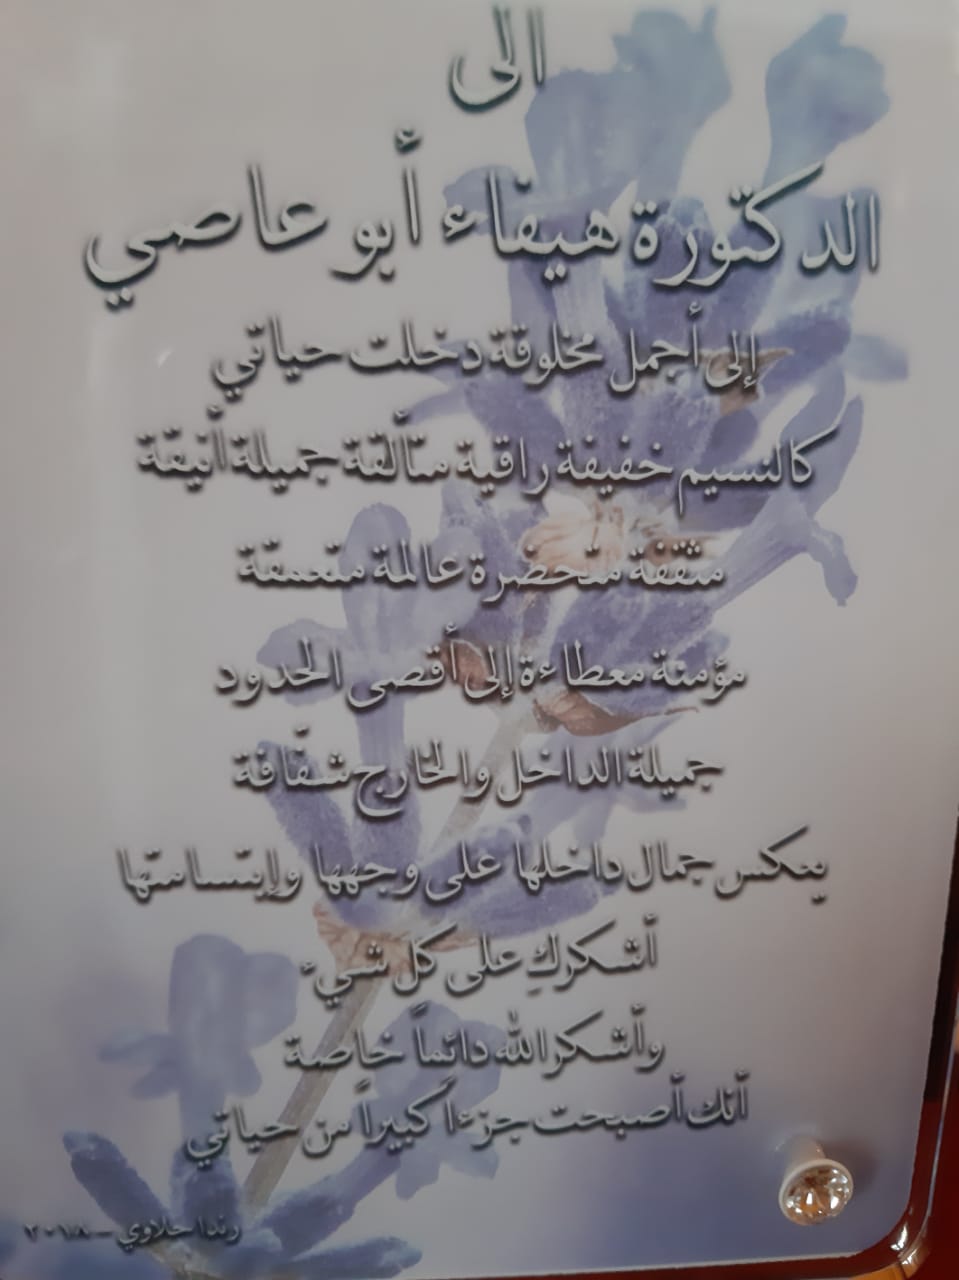 الى
الدكتورة هيفاء أبو عاصي
إلى أجمل مخلوقة دخلت حياتي
كالنسيم خفيفة راقية متألقة جميلة أنيقة
مثقفة متحضرة عالمة متعمقة
مؤمنة معطاءة إلى أقصى الحدود
جميلة الداخل والخارج شفّافة
يعكس جمال داخلها على وجهها وإبتسامتها
أشكركِ على كل شيء
وأشكر الله دائماً خاصة
أنك أصبحت جزءاً كبيراً من حياتي
رندا حلاوي - ٢٠١٨